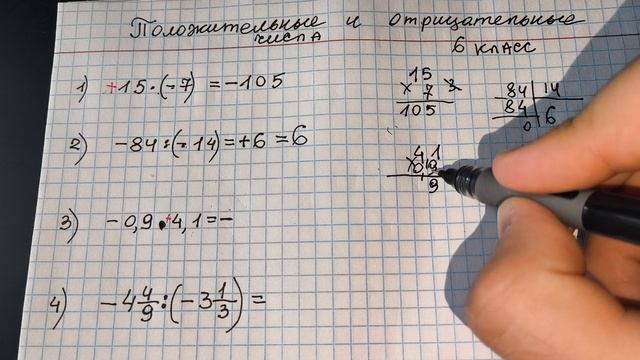 Положительные и отрицательные
числа
6 класс
1) +15·(-7) = -105
2) -84:(-14)=+6=6
3) -0,9·+4,1=-
4) -4 4/9:(-3 1/3)=
15
× 7 3
105
84 14
84 6
0
4,1
×0,9
9